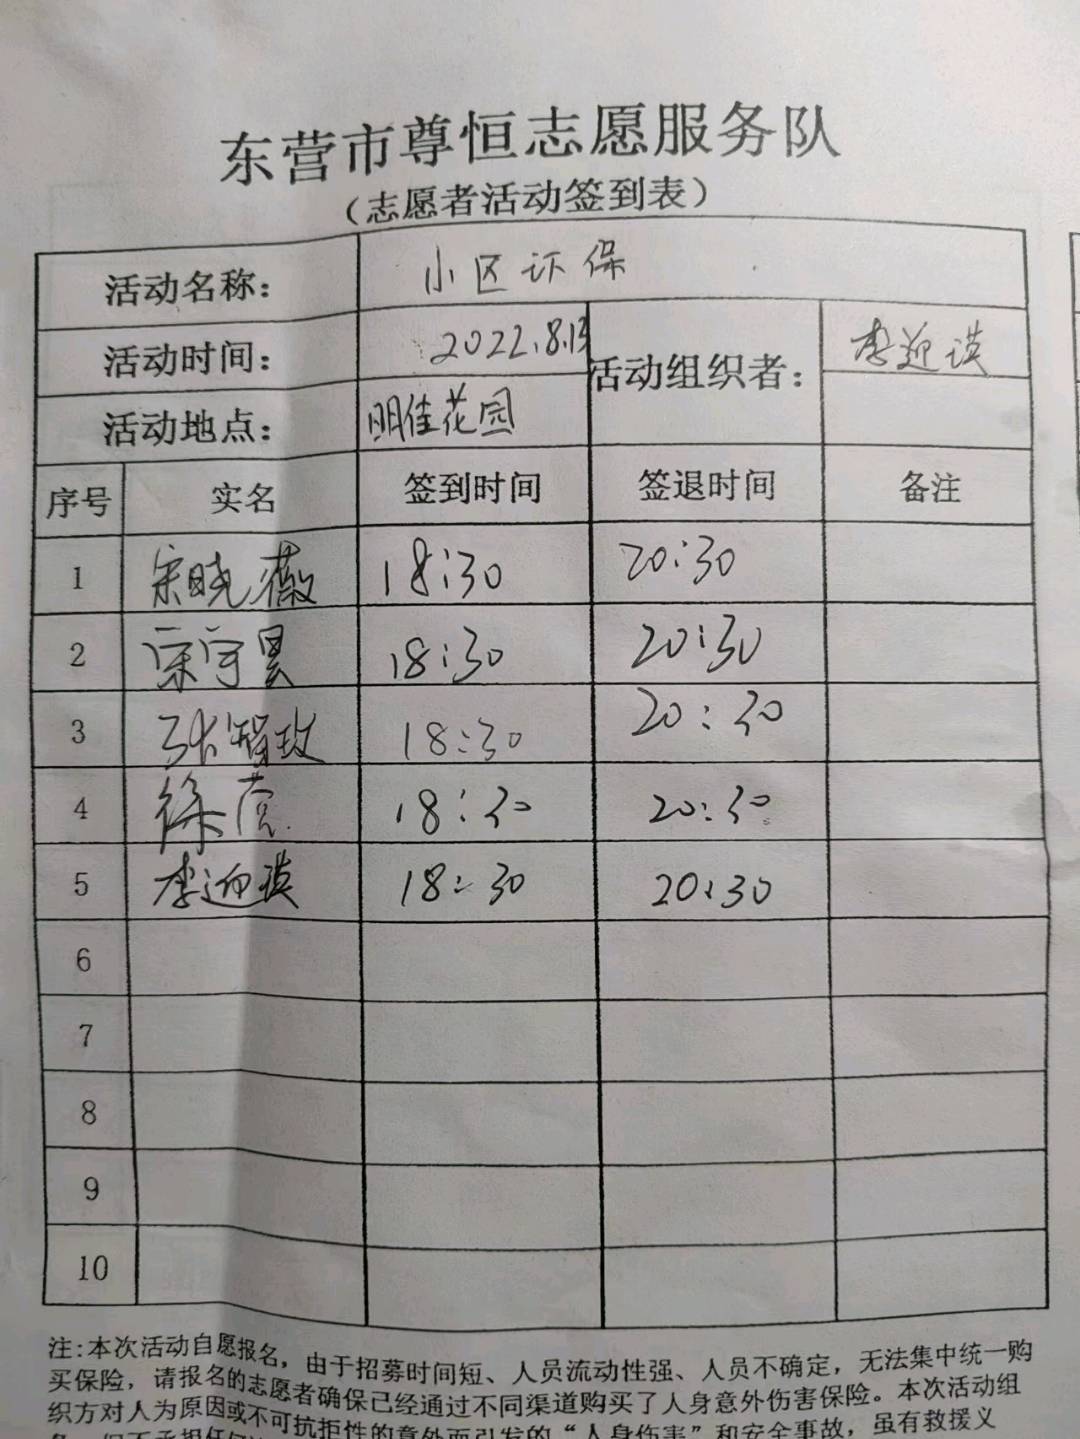 东营市尊恒志愿服务队
（志愿者活动签到表）
活动名称： 小区环保
活动时间： 2022.8.13 活动组织者： 李迎瑛
活动地点： 明佳花园
序号 实名 签到时间 签退时间 备注
1 宋晓薇 18:30 20:30
2 宋宇昊 18:30 20:30
3 张智玫 18:30 20:30
4 徐 18:30 20:30
5 李迎瑛 18:30 20:30
6
7
8
9
10
注：本次活动自愿报名，由于招募时间短、人员流动性强、人员不确定，无法集中统一购
买保险，请报名的志愿者确保已经通过不同渠道购买了人身意外伤害保险。本次活动组
织方对人为原因或不可抗拒性的意外而引发的“人身伤害”和安全事故，虽有救援义